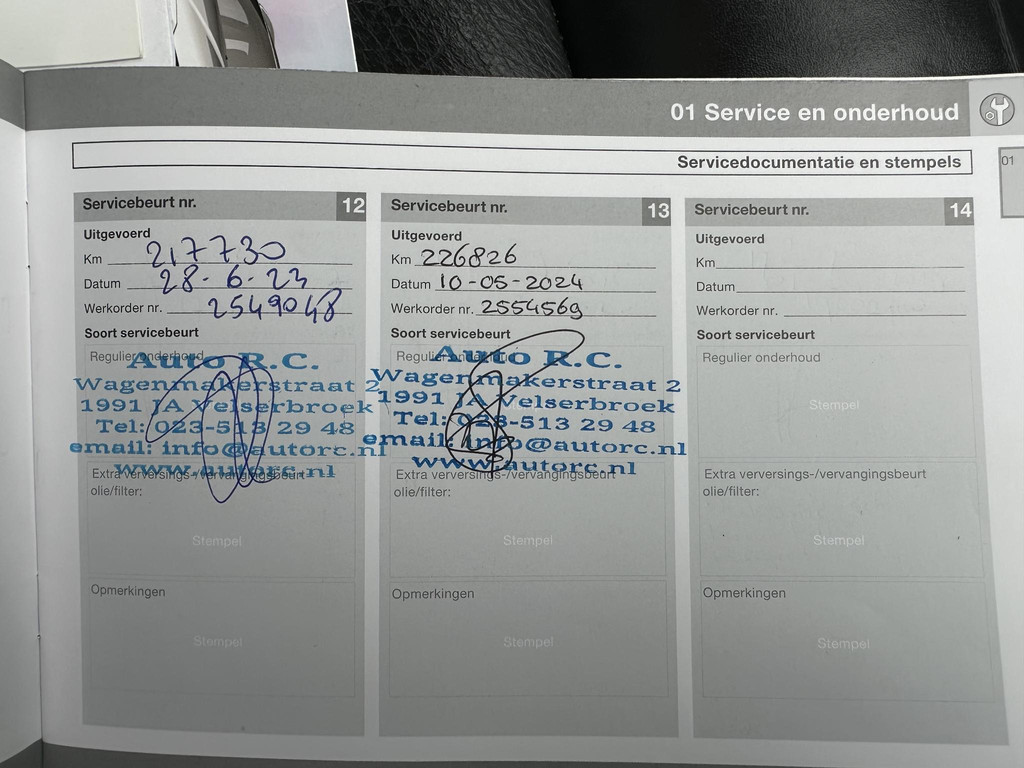 01 Service en onderhoud
01
Servicedocumentatie en stempels
Servicebeurt nr. 12
Uitgevoerd
Km 217730
Datum 28-6-23
Werkorder nr. 2549048
Soort servicebeurt
Regulier onderhoud
Auto R.C.
Wagenmakerstraat 2
1991 JA Velserbroek
Tel: 023-513 29 48
email: info@autorc.nl
www.autorc.nl
Extra verversings-/vervangingsbeurt
olie/filter:
Stempel
Opmerkingen
Stempel
Servicebeurt nr. 13
Uitgevoerd
Km 226826
Datum 10-05-2024
Werkorder nr. 2554569
Soort servicebeurt
Regulier onderhoud
Auto R.C.
Wagenmakerstraat 2
1991 JA Velserbroek
Tel: 023-513 29 48
email: info@autorc.nl
www.autorc.nl
Extra verversings-/vervangingsbeurt
olie/filter:
Stempel
Opmerkingen
Stempel
Servicebeurt nr. 14
Uitgevoerd
Km
Datum
Werkorder nr.
Soort servicebeurt
Regulier onderhoud
Stempel
Extra verversings-/vervangingsbeurt
olie/filter:
Stempel
Opmerkingen
Stempel